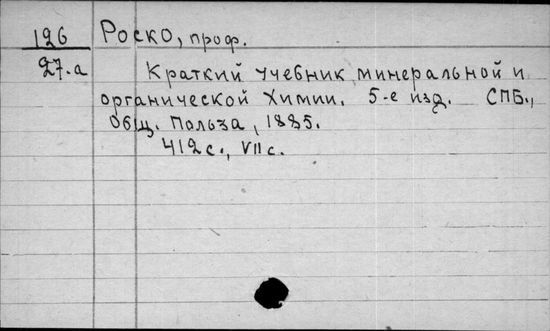 126 Роско, проф.
27.а Краткий учебник минеральной и
органической химии. 5-е изд. СПБ.,
Общ. Польза, 1885.
412с., VIIс.